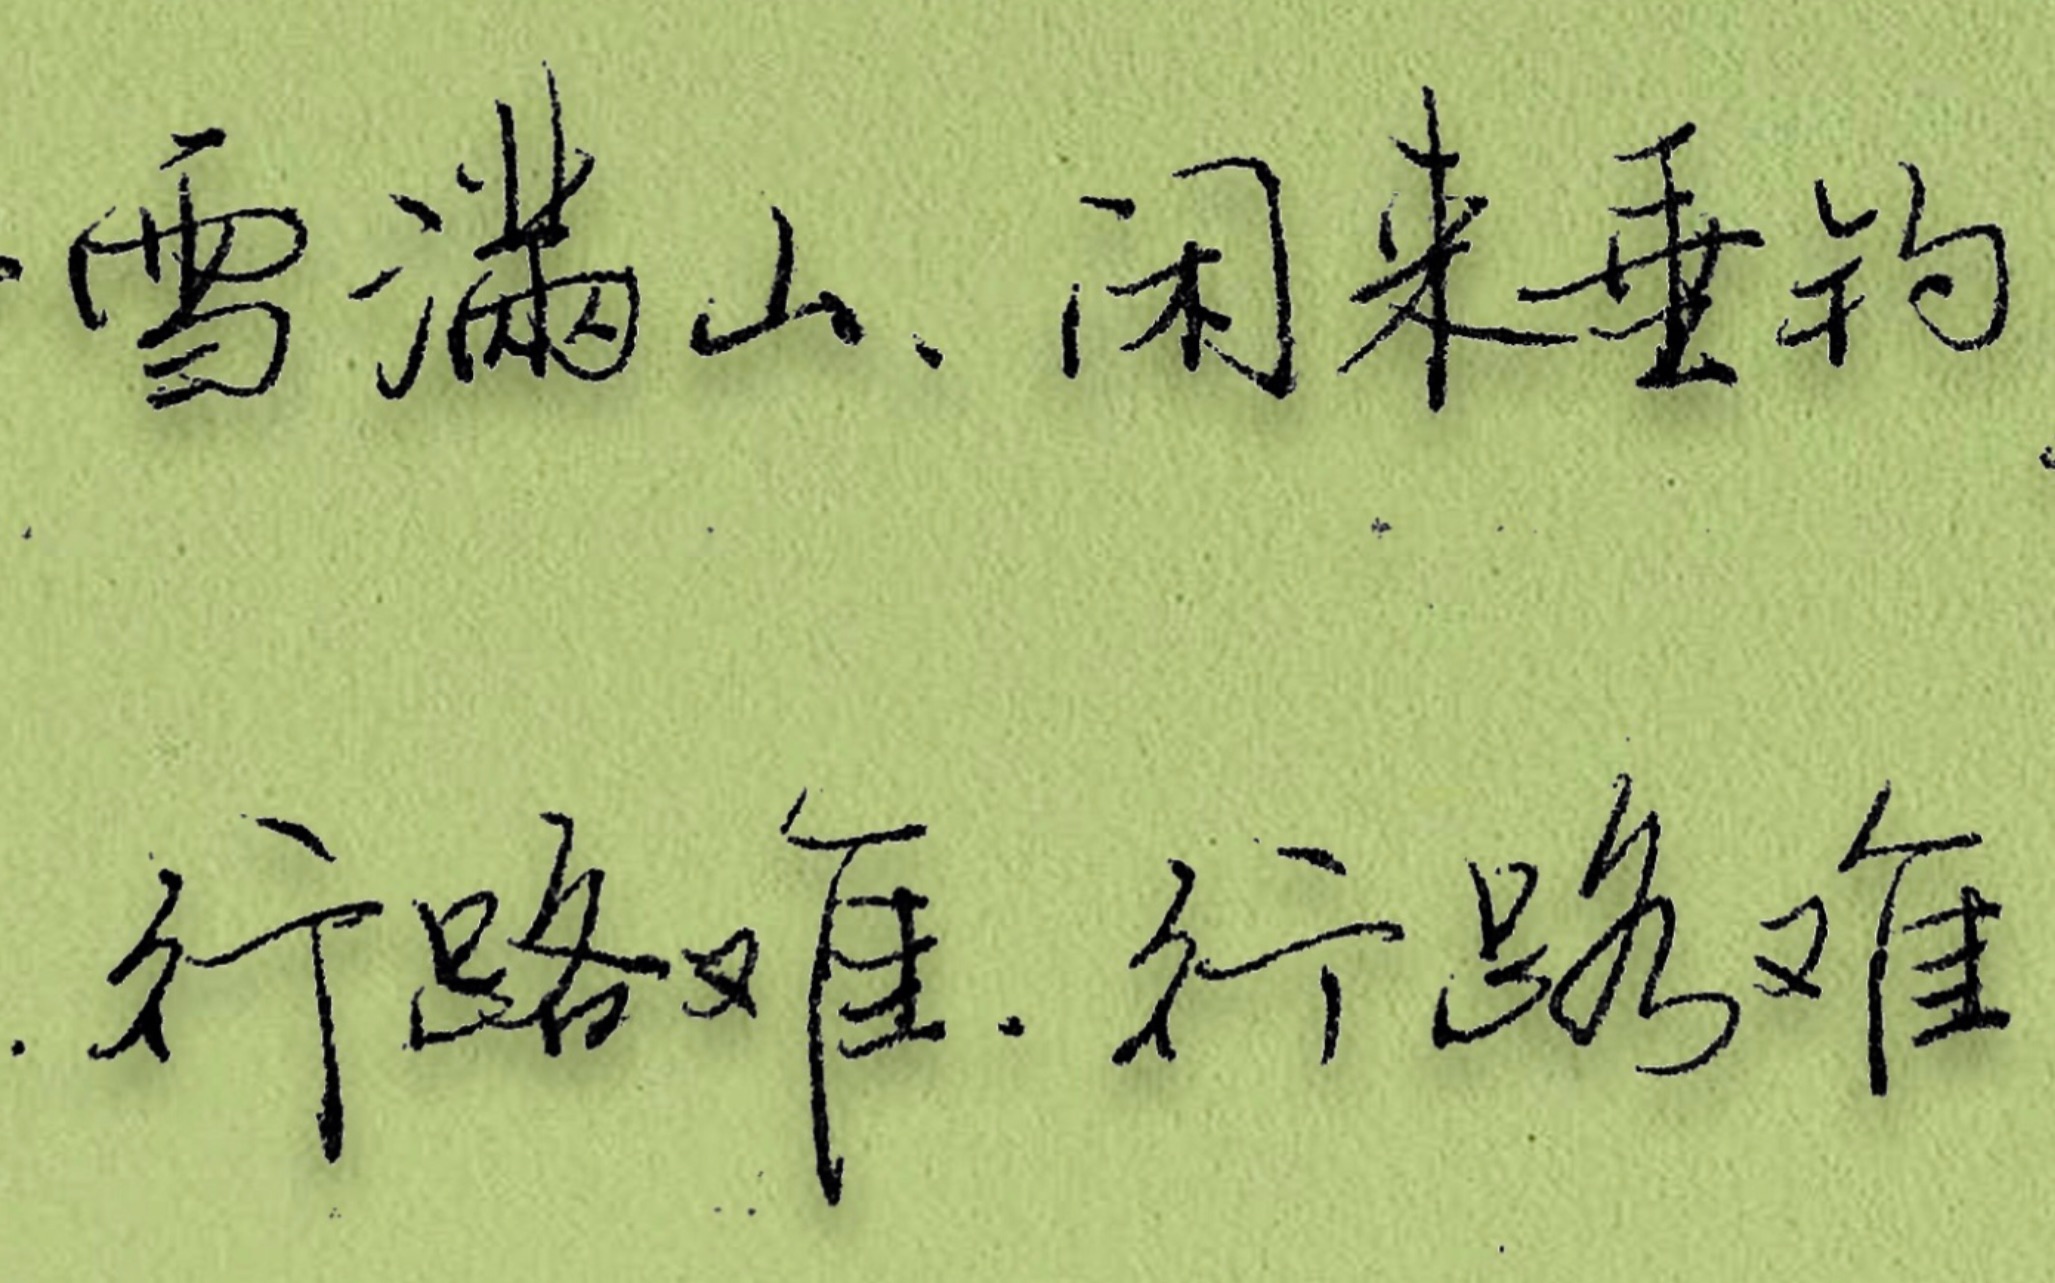 雪满山、闲来垂钓
行路难.行路难